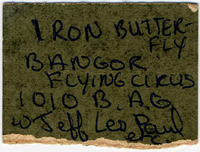 IRON BUTTER-
FLY
BANGOR
FLYING CIRUS
1010 B.A.G
w Jeff Les Paul